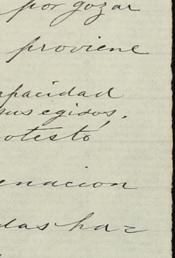 por gozar
proviene
apacidad
sus egidos,
otestó
enacion
das haz